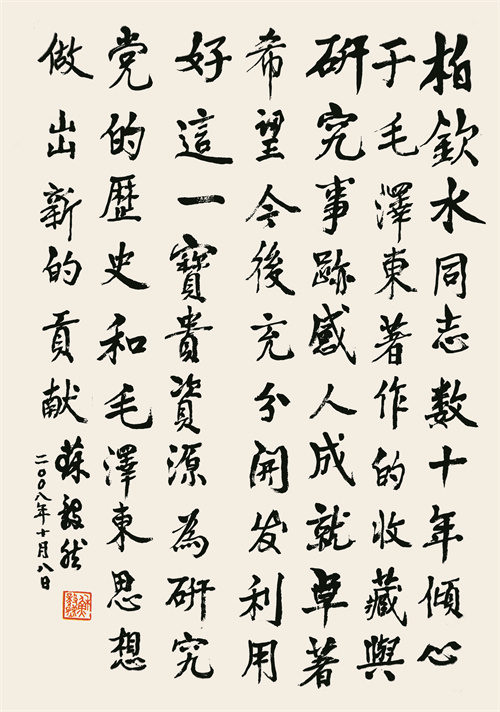 柏欽水同志数十年傾心
于毛澤東著作的收藏與
研究事跡感人成就卓著
希望今後充分開发利用
好這一寶貴資源為研究
党的歷史和毛澤東思想
做出新的貢献
蘇毅然
二〇〇八年十月八日